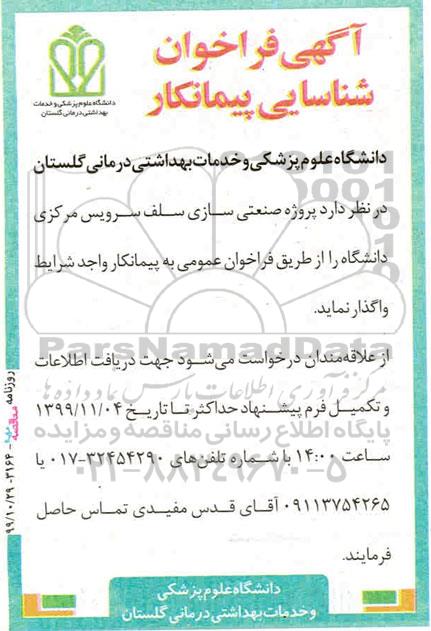 آگهی فراخوان
شناسایی پیمانکار
دانشگاه علوم پزشکی و خدمات
بهداشتی درمانی گلستان
دانشگاه علوم پزشکی و خدمات بهداشتی درمانی گلستان
در نظر دارد پروژه صنعتی سازی سلف سرویس مرکزی
دانشگاه را از طریق فراخوان عمومی به پیمانکار واجد شرایط
واگذار نماید.
از علاقه‌مندان درخواست می‌شود جهت دریافت اطلاعات
و تکمیل فرم پیشنهاد حداکثر تا تاریخ ۱۳۹۹/۱۱/۰۴
ساعت ۱۴:۰۰ با شماره تلفن‌های ۳۲۴۵۴۲۹۰-۰۱۷ یا
۰۹۱۱۳۷۵۴۲۶۵ آقای قدس مفیدی تماس حاصل
فرمایند.
دانشگاه علوم پزشکی
و خدمات بهداشتی درمانی گلستان
ParsNamadData
مرکز فرآوری اطلاعات پارس نماد داده‌ها
پایگاه اطلاع رسانی مناقصه و مزایده
۰۲۱-۸۸۳۴۹۶۷۰-۵
روزنامه مناقصه ۳۱۶۴ - ۹۹/۱۰/۲۹